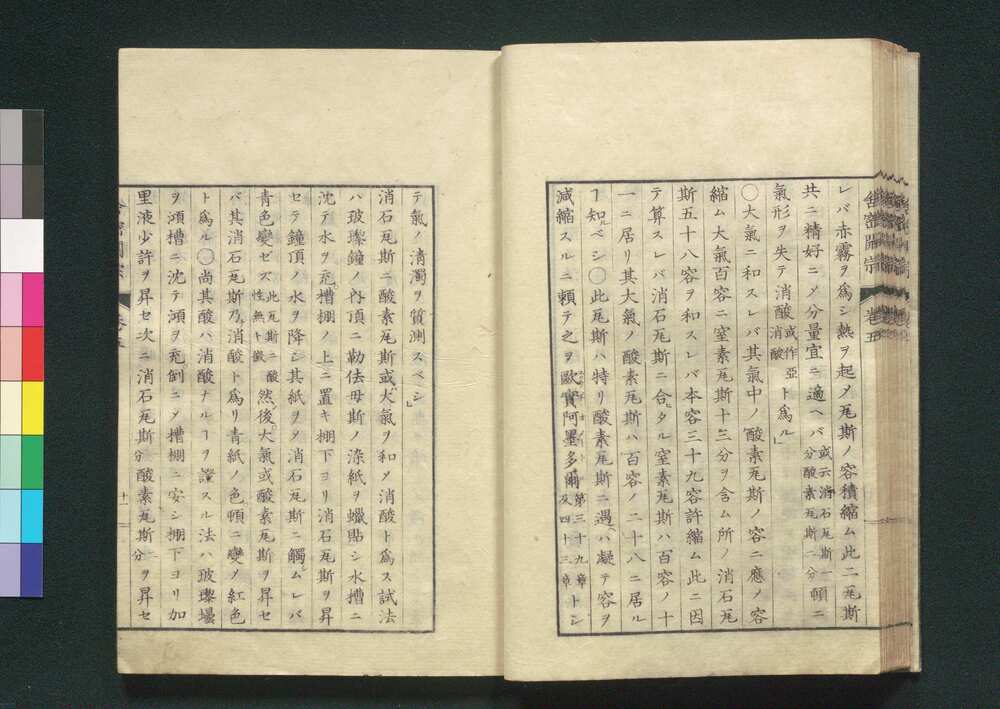 舎密開宗
巻五
レバ赤霧ヲ為シ熱ヲ起メ瓦斯ノ容積縮ム此二瓦斯
共ニ精好ニメ分量宜ニ適ヘバ或云消石瓦斯一分酸素瓦斯二分頓ニ
氣形ヲ失テ消酸或作亞消酸ト為ル」
〇大氣ニ和スレバ其氣中ノ酸素瓦斯ノ容ニ應メ容
縮ム大氣百容ニ窒素瓦斯十三分ヲ含ム所ノ消石瓦
斯五十八容ヲ和スレバ本容三十九容許縮ム此ニ因
テ算スレバ消石瓦斯ニ合タル窒素瓦斯ハ百容ノ十
一ニ居リ其大氣ノ酸素瓦斯ハ百容ノ二十八ニ居ル
ヿ知ベシ〇此瓦斯ハ特リ酸素瓦斯ニ遇ハ凝テ容ヲ
減縮スルニ頼テ之ヲ歐實阿墨多爾第三十九章及四十三章トシ
テ氣ノ清濁ヲ質測スベシ」
消石瓦斯ニ酸素瓦斯或大氣ヲ和メ消酸ト為ス試法
ハ玻瓈鐘ノ內頂ニ勒佉母斯ノ染紙ヲ蠟貼シ水槽ニ
沈テ水ヲ充槽棚ノ上ニ置キ棚下ヨリ消石瓦斯ヲ昇
セテ鐘頂ノ水ヲ降シ其紙ヲヲ消石瓦斯ニ觸シムレバ
青色變ゼズ此瓦斯ニ酸性無キ徵然後大氣或酸素瓦斯ヲ昇セ
バ其消石瓦斯乃消酸ト為リ青紙ノ色頓ニ變メ紅色
ト為ル〇尚其酸ハ消酸ナルヿヲ證スル法ハ玻瓈壜
ヲ鴻槽ニ沈テ鴻ヲ充倒ニメ槽棚ニ安シ棚下ヨリ加
里液少許ヲ昇セ次ニ消石瓦斯分酸素瓦斯二分ヲ昇セ
十一